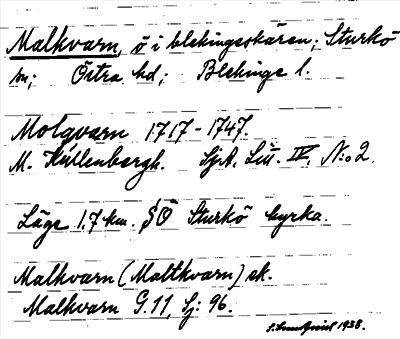 Malkvarn, ö i blekingeskären; Sturkö
sn; Östra hd; Blekinge l.
Molqvarn 1717-1747.
M. Küllenbergh. SjA. Litt. IV, N:o 2.
Läge 1,7 km. SÖ Sturkö kyrka.
Malkvarn (Maltkvarn) sk.
Malkvarn G.11, Sj: 96.
1938.